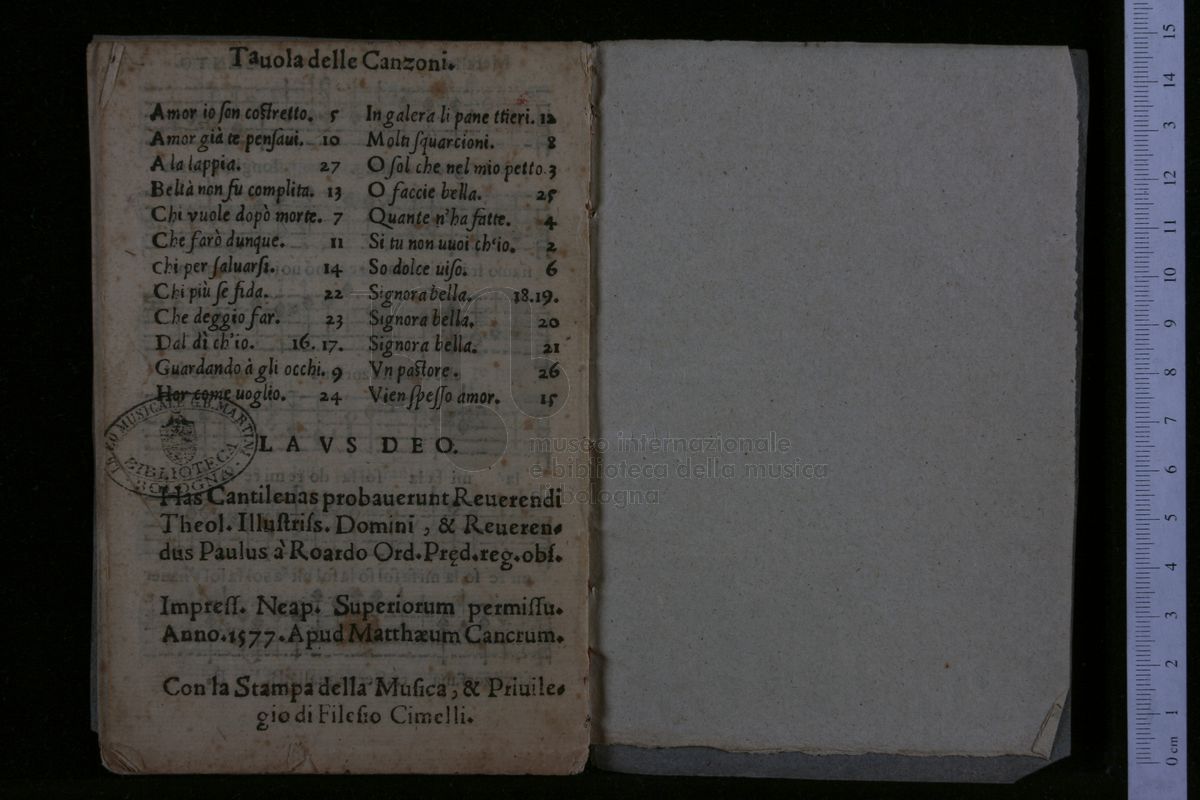 Tauola delle Canzoni.
Amor io ſon coſtretto. 5
Amor già te penſaui. 10
A la lappia. 27
Beltà non fu complita. 13
Chi vuole dopò morte. 7
Che farò dunque. 11
Chi per ſaluarſi. 14
Chi più ſe fida. 22
Che deggio far. 23
Dal dì ch'io. 16. 17.
Guardando à gli occhi. 9
Hor come uoglio. 24
In galera li pane ttieri. 12
Molti ſquarcioni. 8
O ſol che nel mio petto. 3
O faccie bella. 25
Quante n'ha fatte. 4
Si tu non uuoi ch'io. 2
So dolce uiſo. 6
Signora bella. 18.19.
Signora bella. 20
Signora bella. 21
Vn paſtore. 26
Vien ſpeſſo amor. 15
LAVS DEO.
Has Cantilenas probauerunt Reuerendi
Theol. Illuſtriſs. Domini, & Reueren-
dus Paulus à Roardo Ord. Pręd. reg. obſ.
Impreſſ. Neap. Superiorum permiſſu.
Anno. 1577. Apud Matthæum Cancrum.
Con la Stampa della Muſica, & Priuile-
gio di Fileſio Cimelli.
LICEO MUSICALE G.B. MARTINI
BIBLIOTECA
BOLOGNA
museo internazionale
e biblioteca della musica
di bologna
0 cm 1 2 3 4 5 6 7 8 9 10 11 12 13 14 15